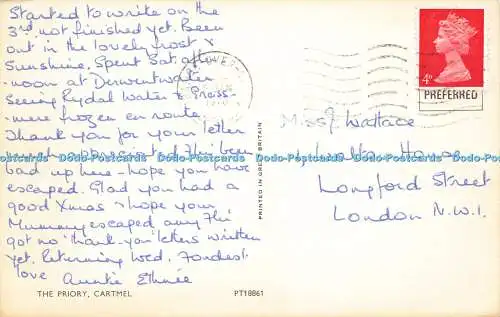 Started to write on the
3rd, not finished yet. Been
out in the lovely frost &
Sunshine, Spent Sat. after
-noon at Derwentwater
Seeing Rydal Water & Grass-
-mere frozen en route.
Thank you for your letter
much appreciated. Flu been
bad up here - hope you have
escaped. Glad you had a
good Xmas & hope your
Mummy escaped any flu
got no "thank-you" letters written
yet. Returning Wed. Fondest
love Auntie Ethnée
THE PRIORY, CARTMEL
PT18861
PRINTED IN GREAT BRITAIN
4D
PREFERRED
Miss J Wallace
House
Longford Street
London N.W.1.
www.D-Postcards.com D-Postcards.com D-Postcards.com D-Postcards.com D-Postcards.com